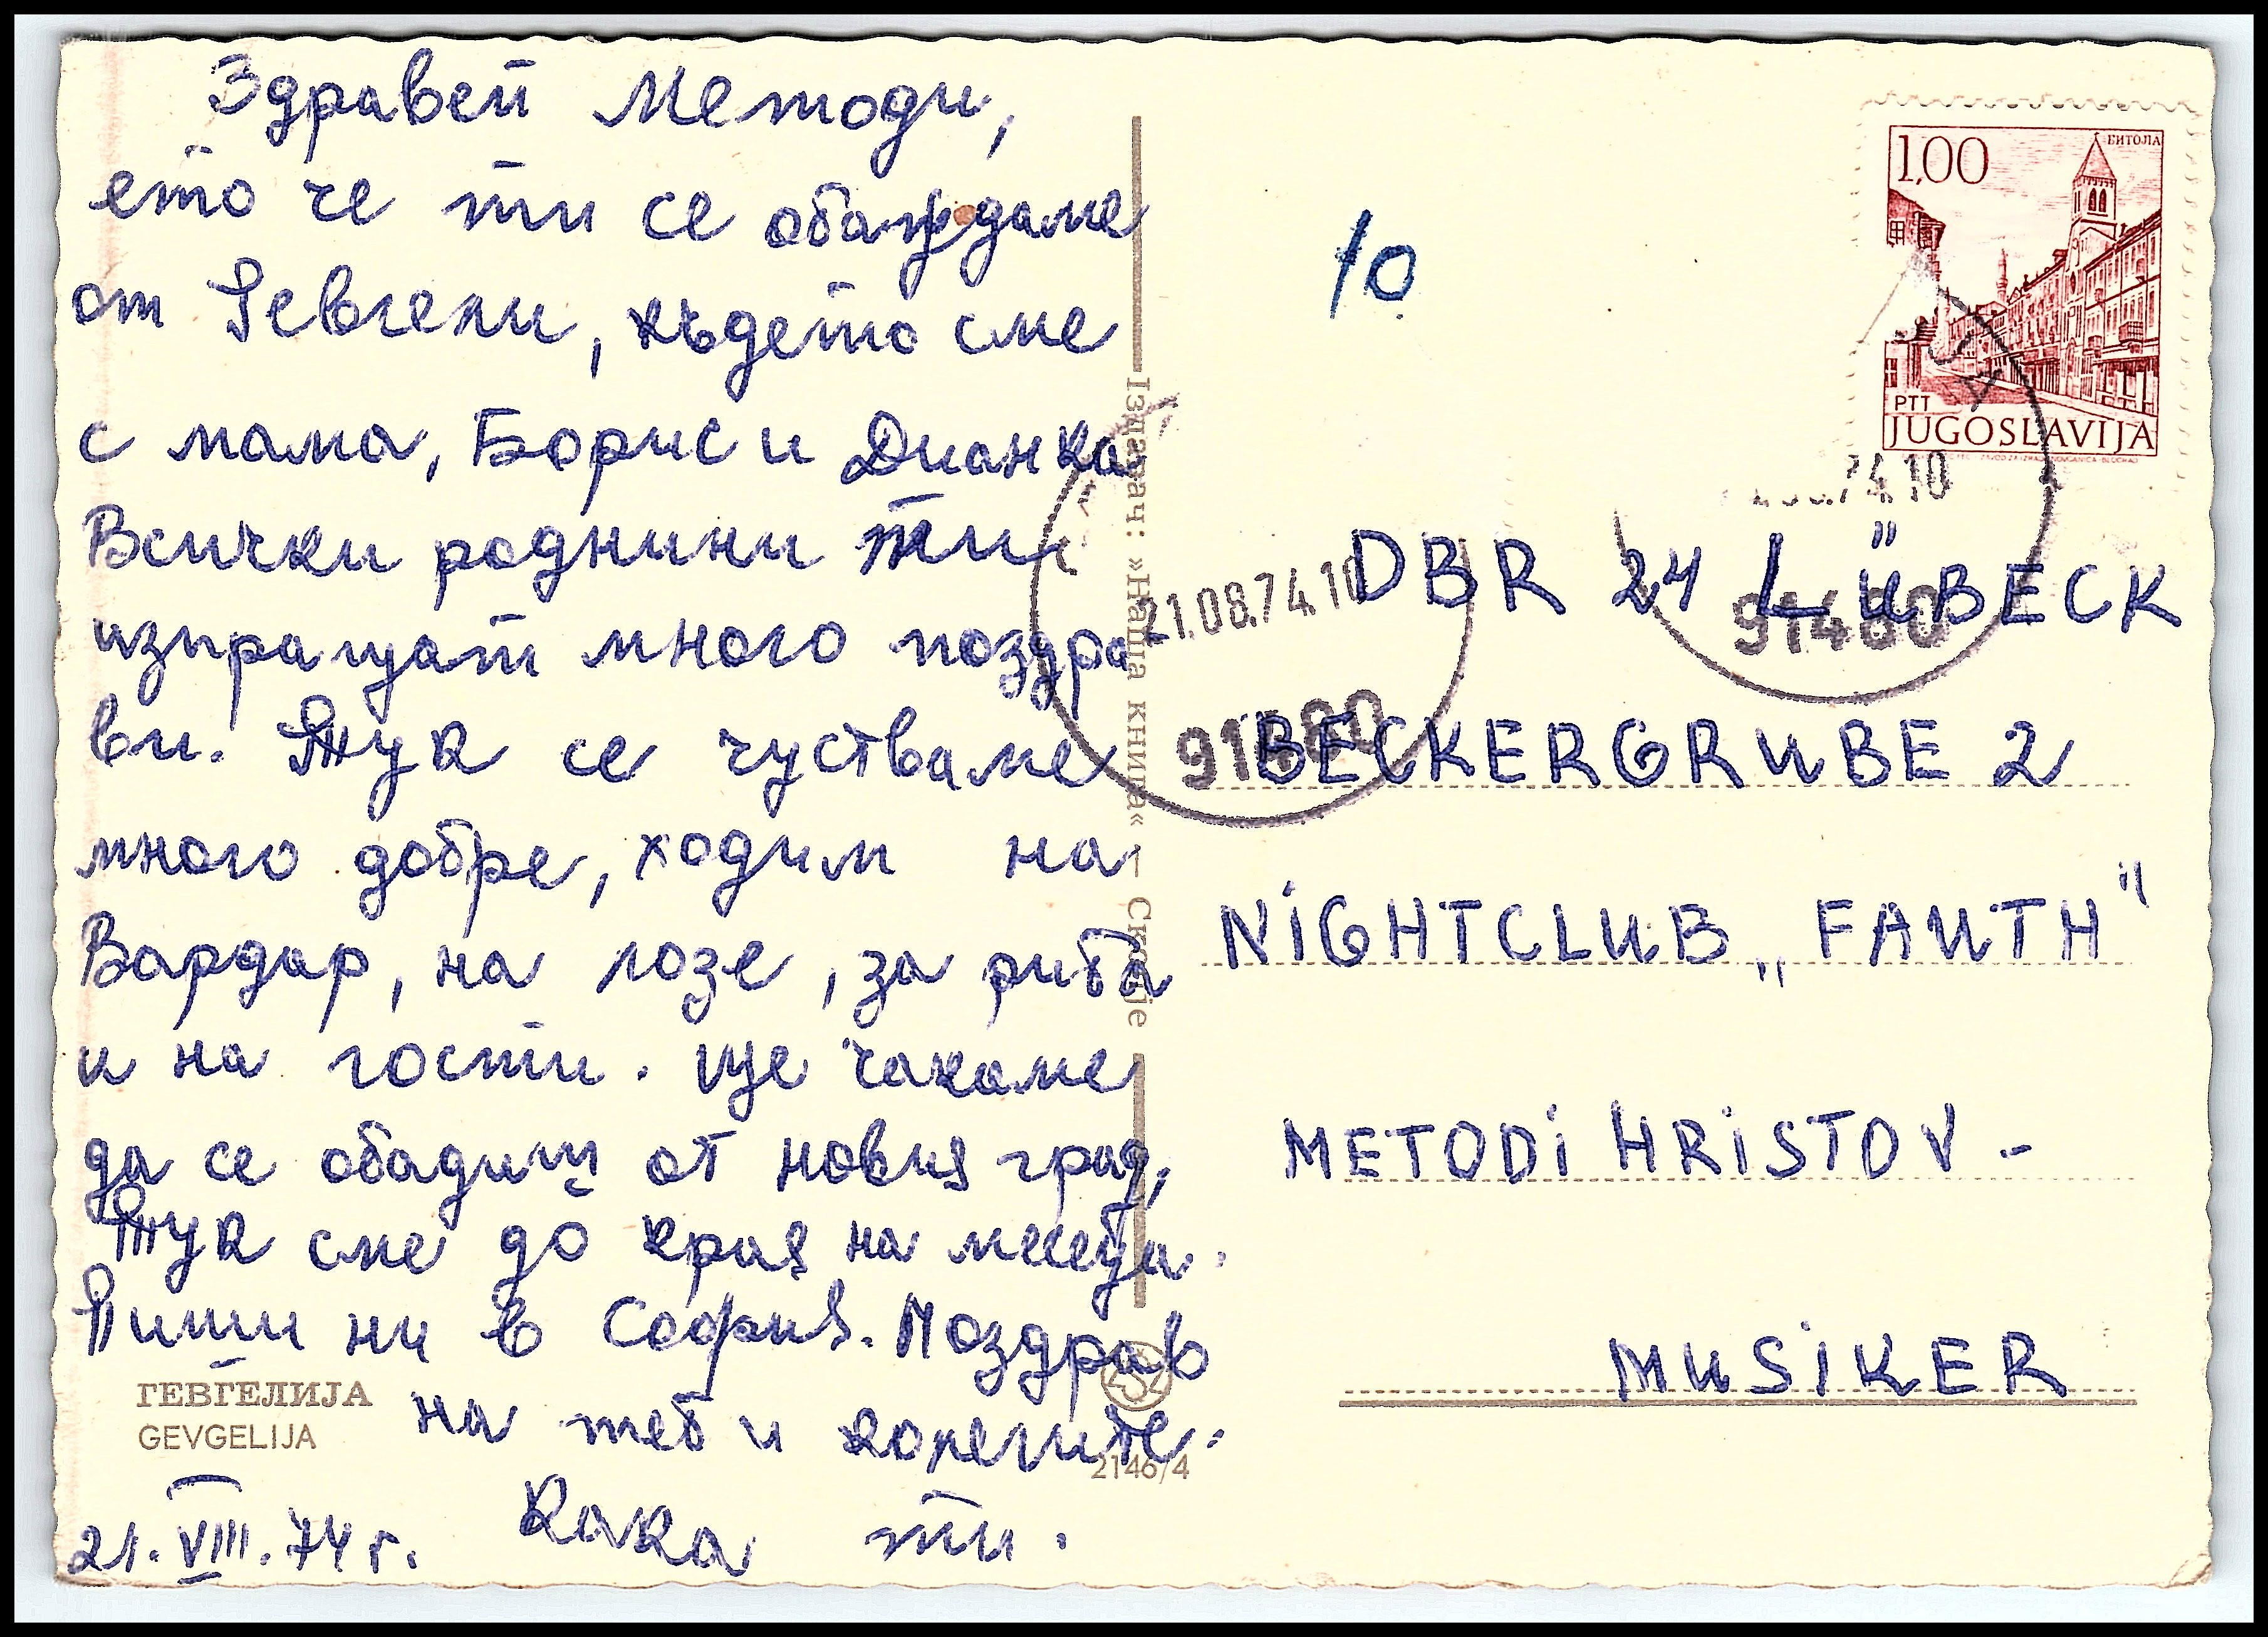 Здравей Методи,
ето че ти се обаждаме
от Гевгели, където сме
с мама, Борис и Дианка
Всички роднини ти
изпращат много поздра-
ви. Тук се чустваме
много добре, ходим на
Вардар, на лозе, за риба
и на гости. Ще чакаме
да се обадиш от новия град,
Тук сме до края на месеца.
Пиши ни в София. Поздрав
на теб и колегите.
Кака ти.
21.VIII.74 г.
ГЕВГЕЛИЈА
GEVGELIJA
Издавач: »Наша книга« — Скопје
2146/4
10
1,00
БИТОЛА
PTT
JUGOSLAVIJA
74.10
91480
21.08.74.10
91480
DBR 24 LÜBECK
BECKERGRUBE 2
NIGHTCLUB „FAUTH"
METODI HRISTOV -
MUSIKER